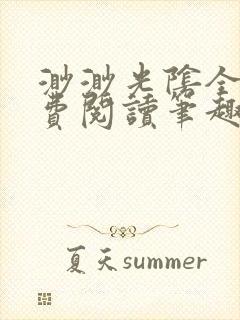 渺渺光陰全
費閱讀筆趣
夏天summer